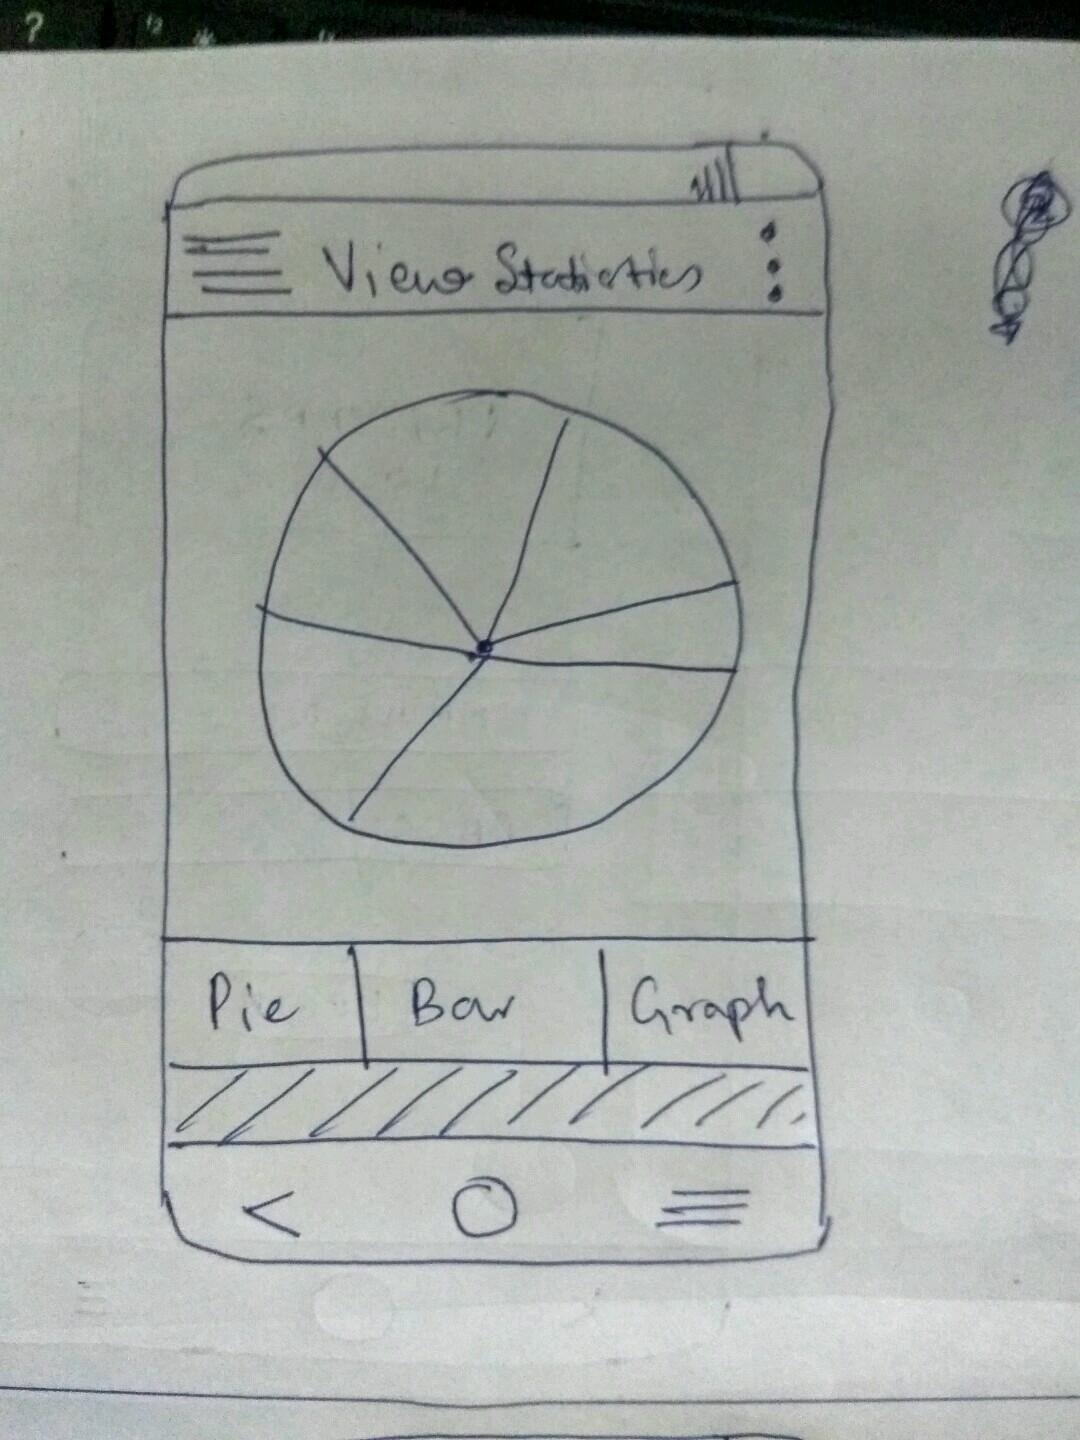 View Statistics
Pie Bar Graph